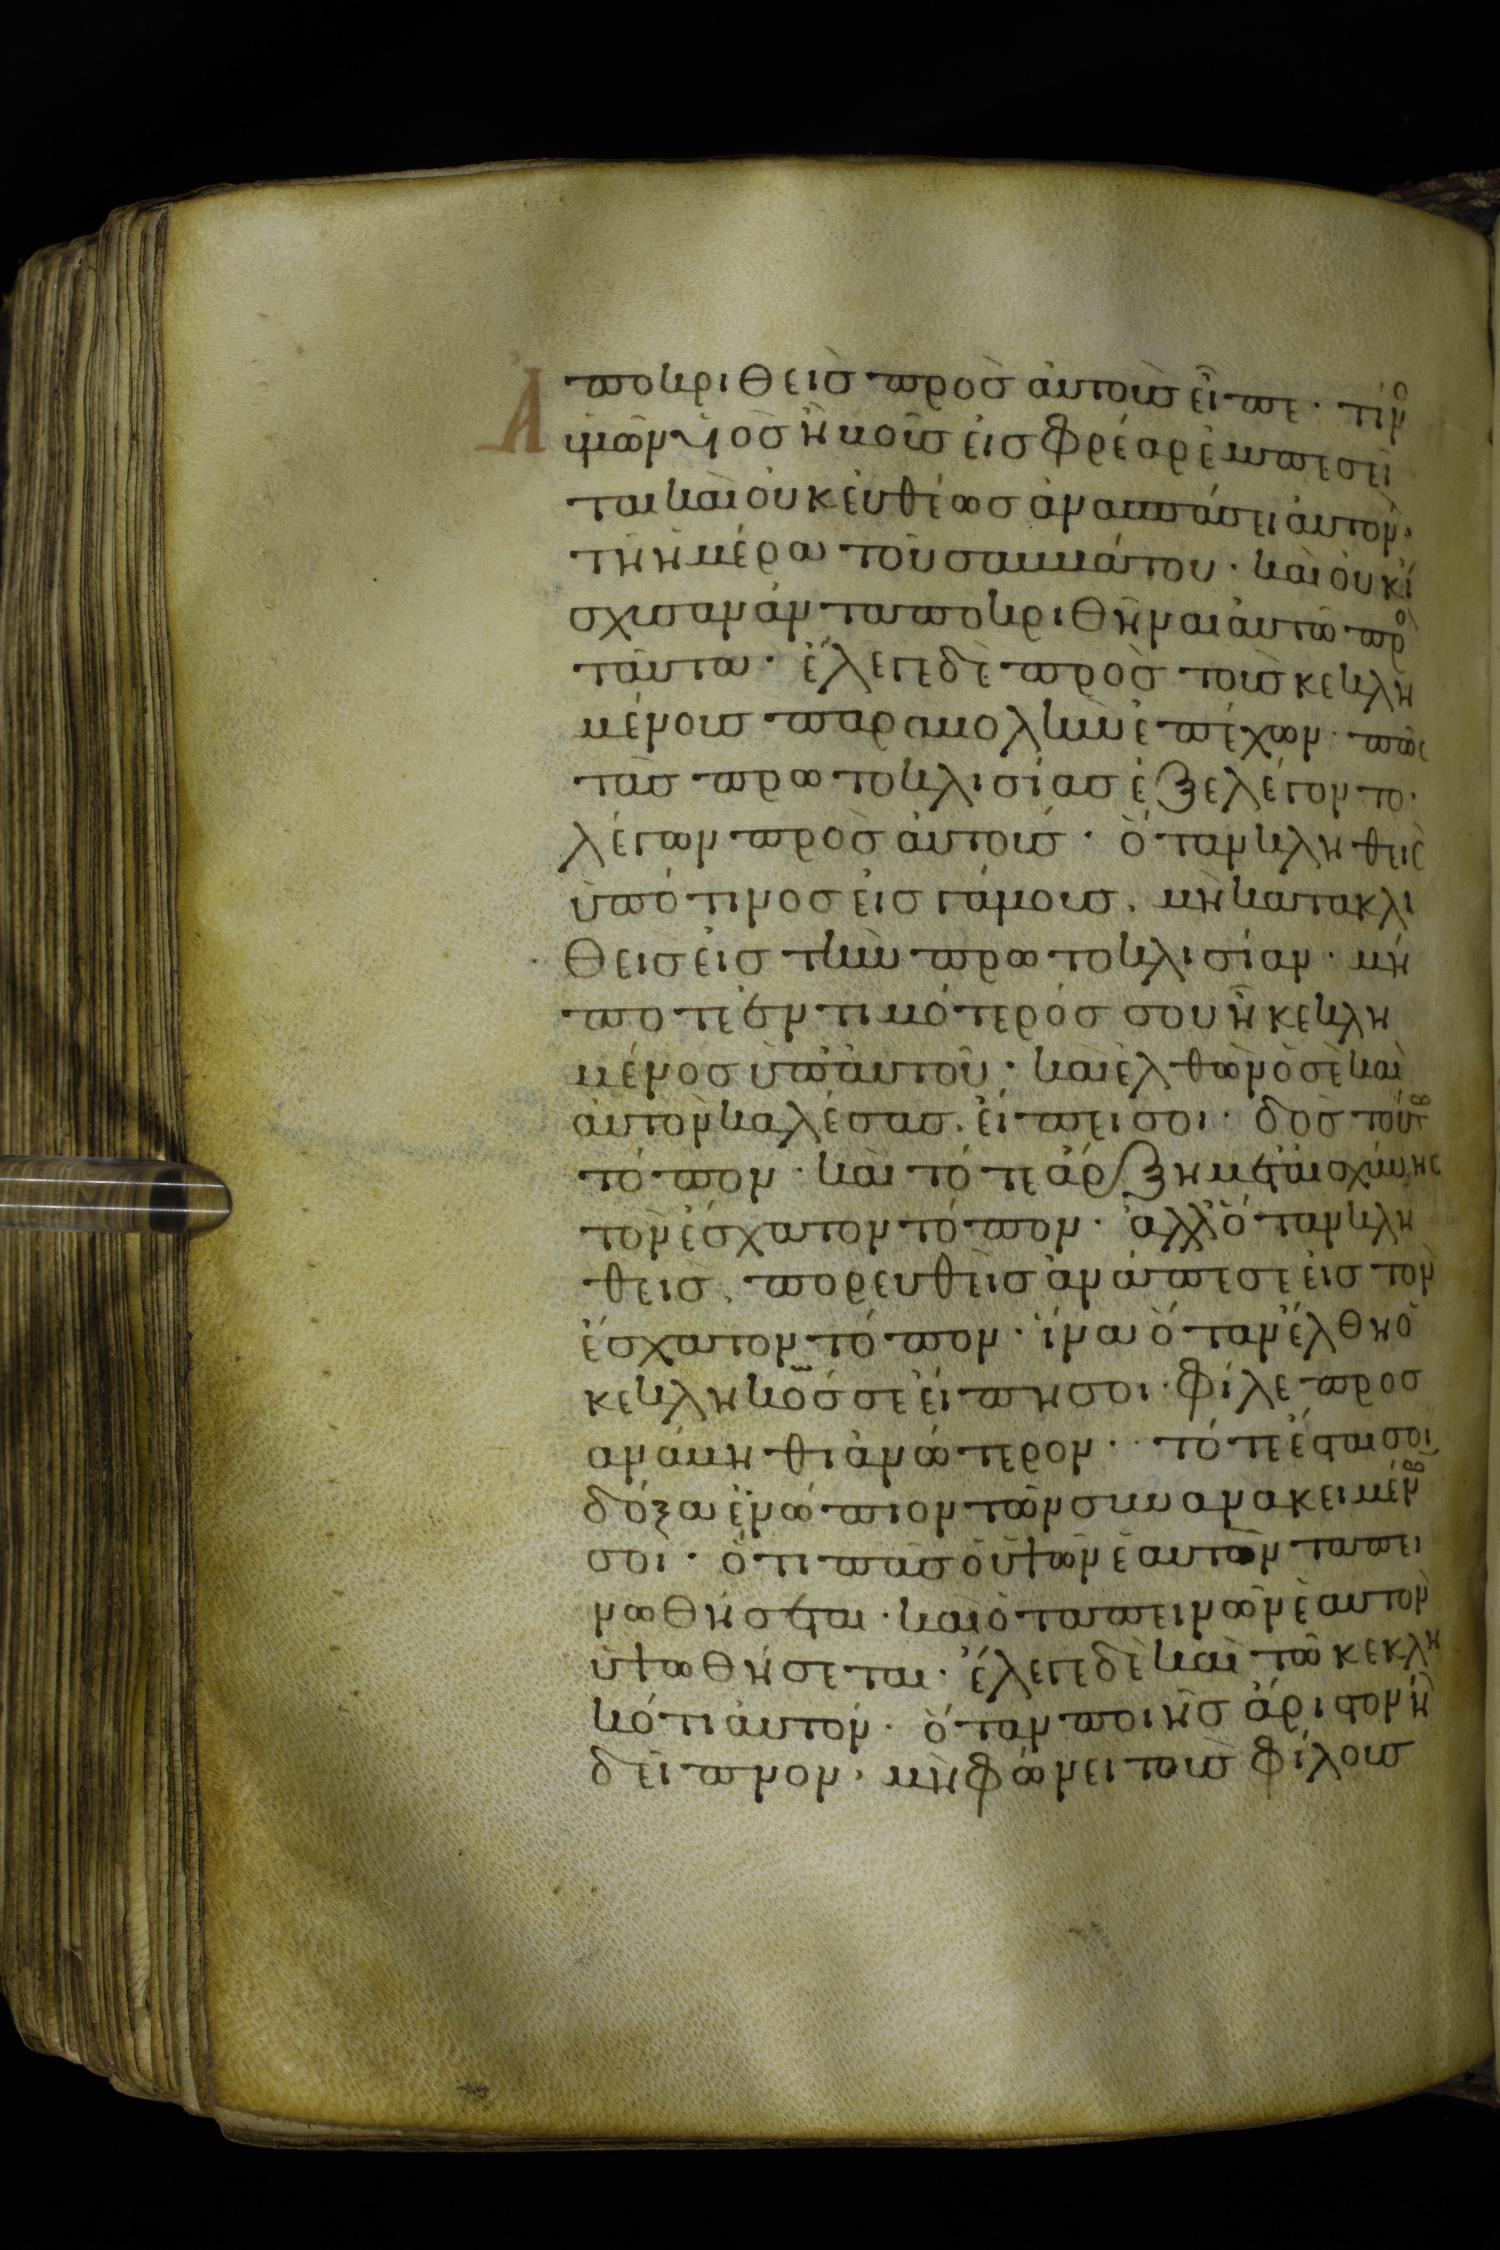 Ἀποκριθεὶς πρὸς ἀυτοὺς εἶπε · τίνος
ὑμῶν ὑιὸς ἢ βοῦς εἰς φρέαρ ἐμπεσεῖ
ται καὶ οὐκ ἐυθέως ἀνασπάσει ἀυτὸν·
τῆ ἡμέρα τοῦ σαββάτου · καὶ οὐκ ἴ
σχυσαν ἀνταποκριθῆναι ἀυτῶ πρὸ
ταῦτα · ἔλεγε δὲ πρὸς τοὺς κεκλη
μένους παραβολὴν ἐπέχων · πῶς
τὰς πρωτοκλισίας ἐξελέγοντο ·
λέγων πρὸς ἀυτούς · ὅταν κληθεὶς
ὑπό τινος εἰς γάμους · μὴ κατακλι
θεῖς εἰς τὴν πρωτοκλισίαν · μή
ποτε ἐντιμότερός σου ἦ κεκλη
μένος ὑπ ἀυτοῦ · καὶ ἐλθὼν ὁ σὲ καὶ
ἀυτὸν καλέσας, ἐί πει σοι · δὸς τούτω
τόπον · καὶ τότε ἄρξη μετ ἀισχύνης
τὸν ἔσχατον τόπον · ἀλλ ὅταν κλη
θεὶς, πορευθεὶς ἀνάπεσε εἰς τὸν
ἔσχατον τόπον · ἵνα ὅταν ἔλθη ὁ
κεκληκώς σε ἔιπη σοι · φίλε προσ
ανάβηθι ἀνώτερον · τότε ἔσται σοι
δόξα ἐνώπιον τῶν συνανακειμένων
σοι · ὅτι πᾶς ὁ ὑψῶν ἑαυτὸν ταπει
νωθήσεται · καὶ ὁ ταπεινῶν ἑαυτὸν
ὑψωθήσεται · ἔλεγε δὲ καὶ τῶ κεκλη
κότι ἀυτόν · ὅταν ποιῆς ἄριστον ἢ
δεῖπνον, μὴ φώνει τοὺς φίλους